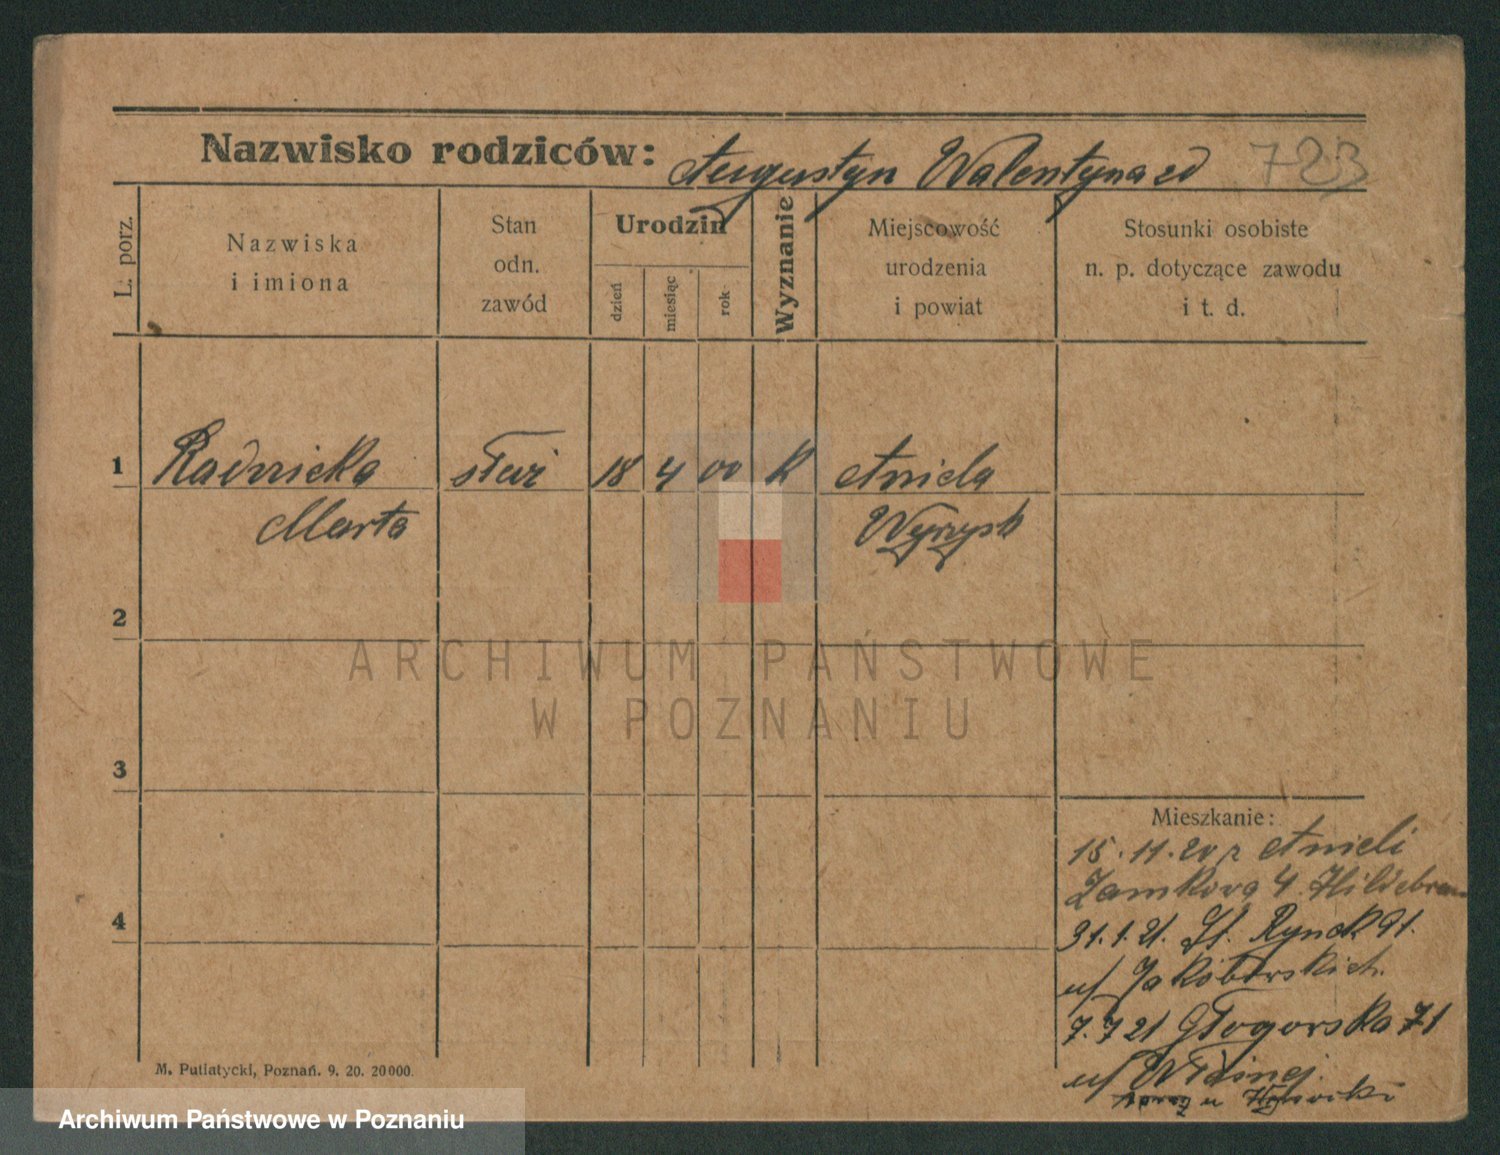 Nazwisko rodziców: Augustyn Walentyna zd 723
L. porz.
Nazwiska
i imiona
Stan
odn.
zawód
Urodzin
dzień
miesiąc
rok
Wyznanie
Miejscowość
urodzenia
i powiat
Stosunki osobiste
n. p. dotyczące zawodu
i t. d.
1 Radnicka służ 18 4 00 K Aniela
Marta Wyrzysk
2
3
4
Mieszkanie:
15.11.20 z Anieli
Zamkowa 4
31.1.21. St. Rynek 91.
u/ Jakóbowskich.
7.7 21 Głogowska 71
u/
M. Putiatycki, Poznań. 9. 20. 20000.
ARCHIWUM PAŃSTWOWE
W POZNANIU
Archiwum Państwowe w Poznaniu